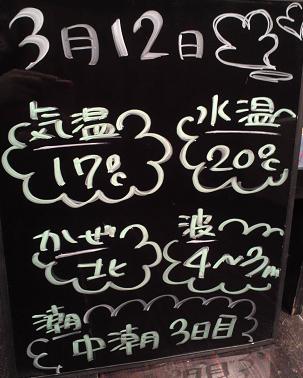 3月12日
気温
17℃
水温
20℃
かぜ
北
波
4〜3m
潮
中潮 3日目